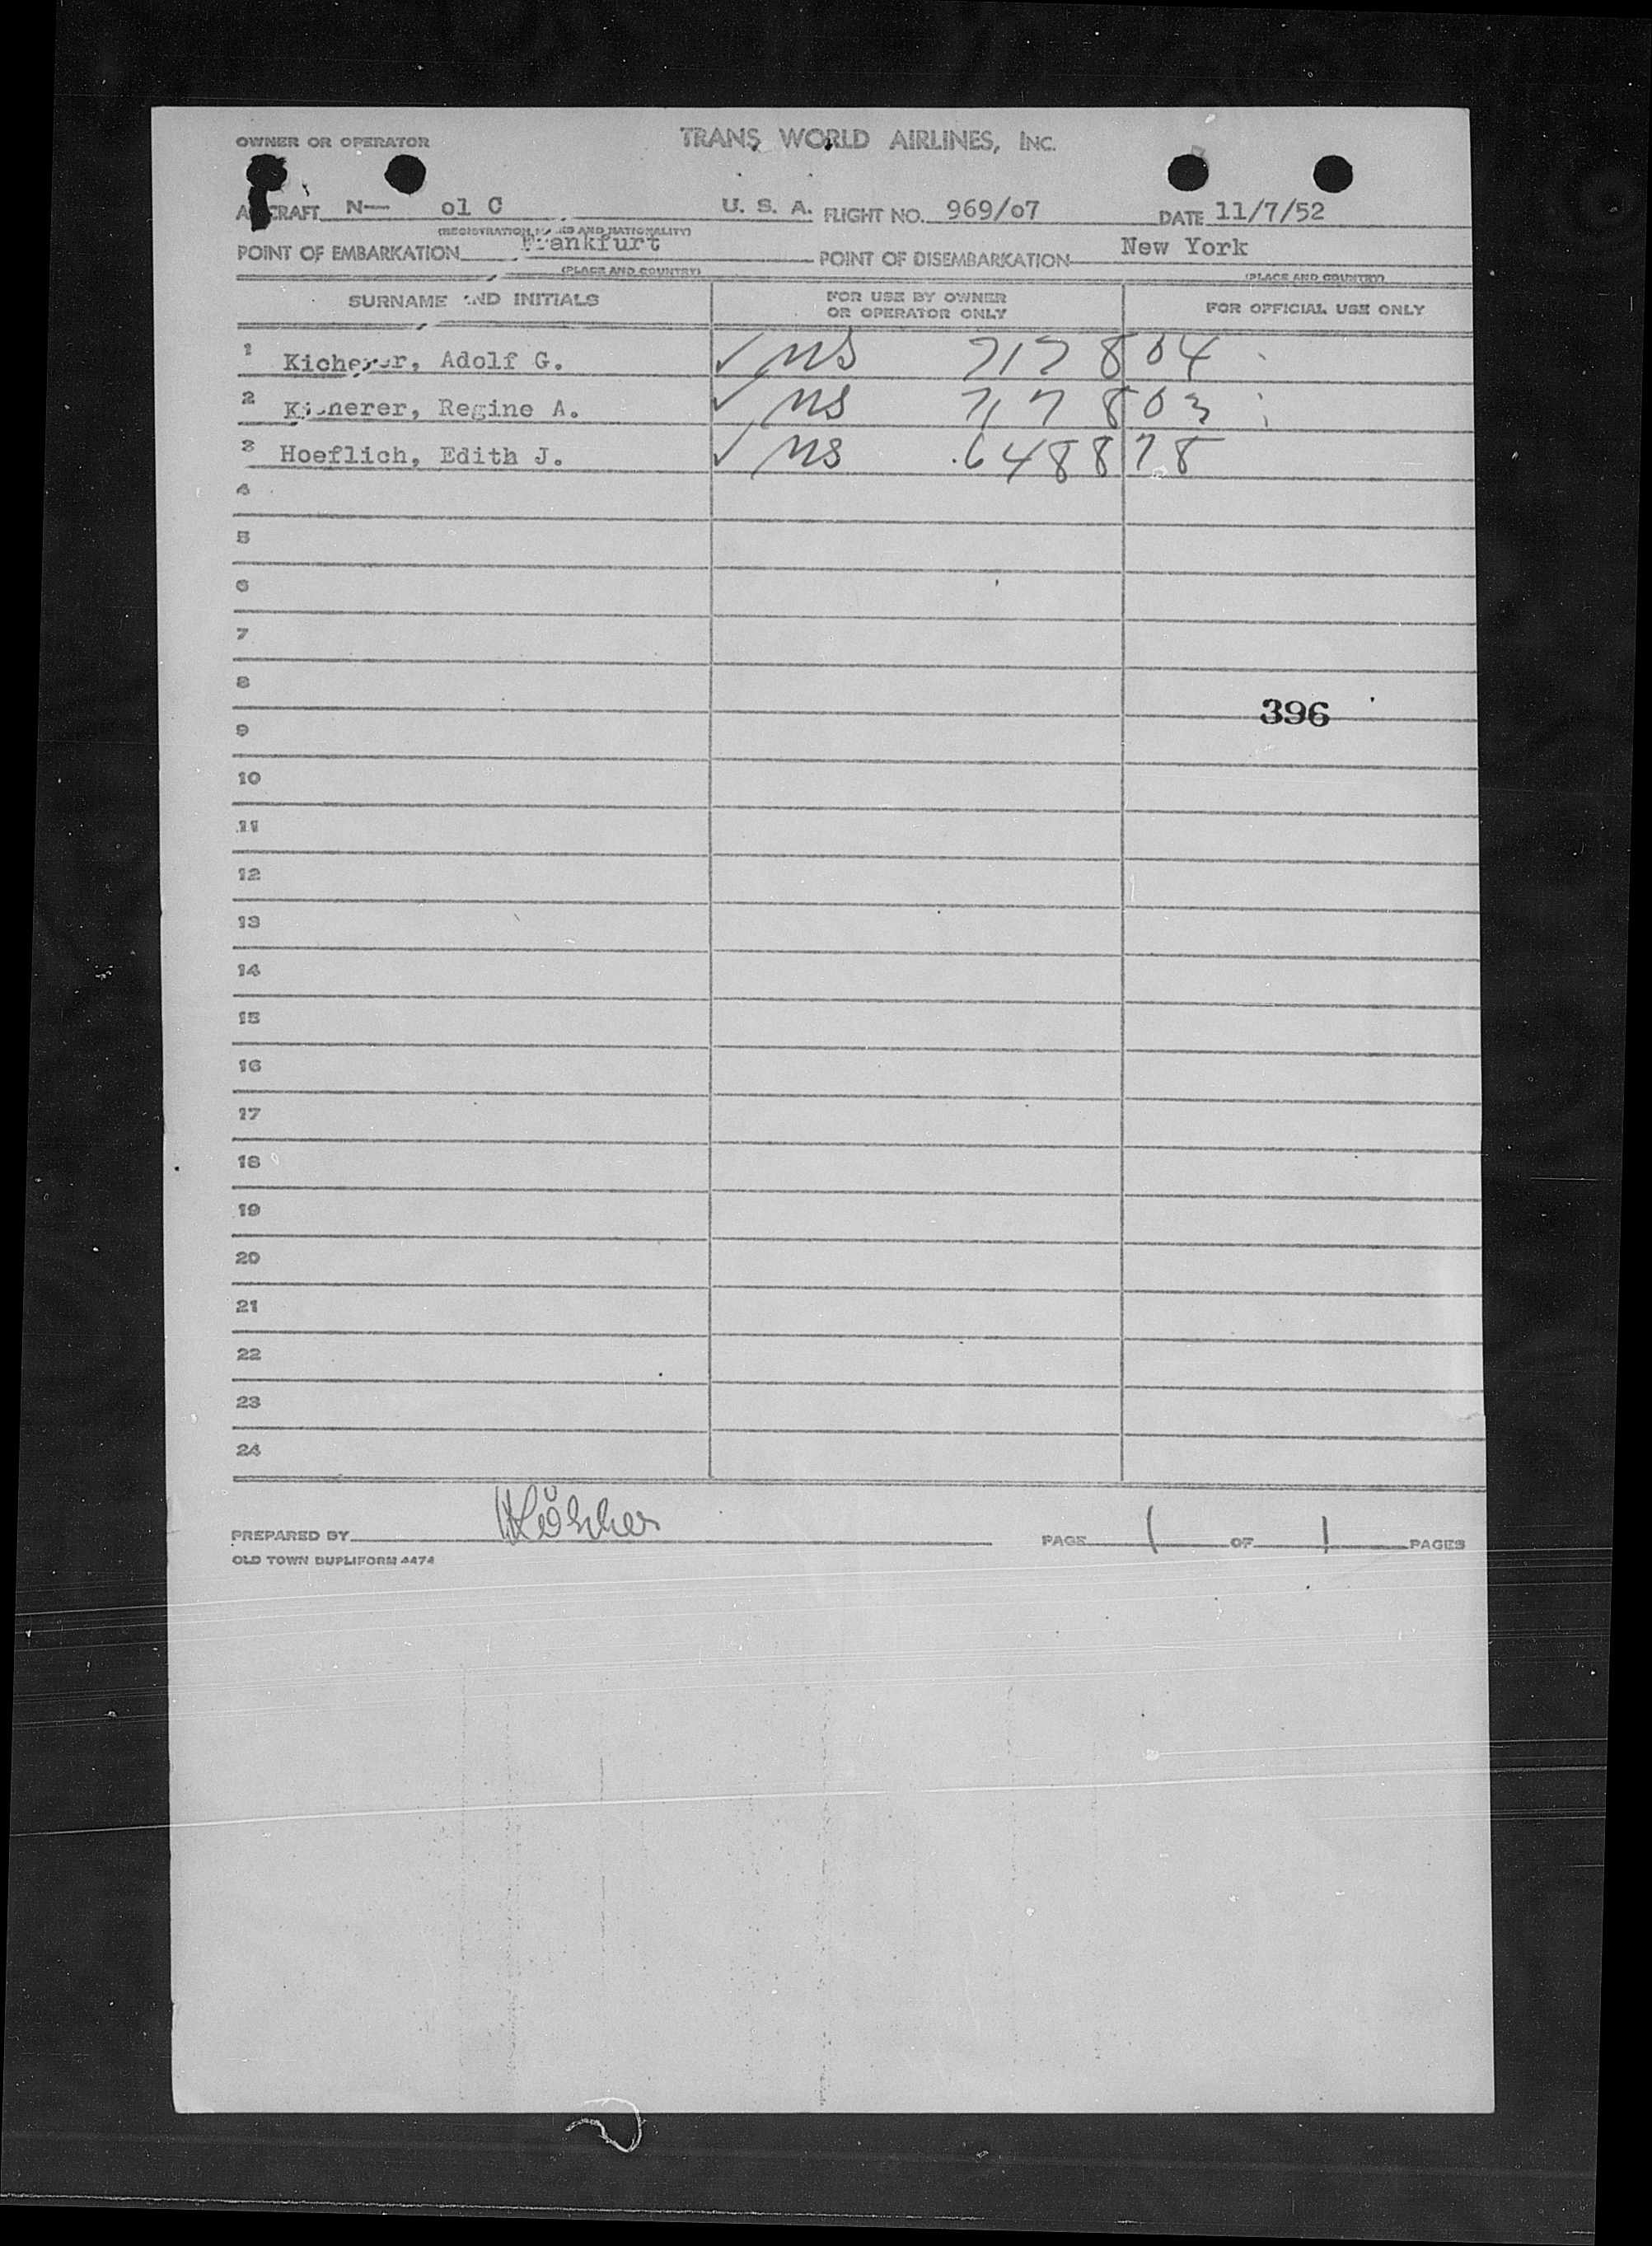 OWNER OR OPERATOR TRANS WORLD AIRLINES, INC.
AIRCRAFT N— 01 C U. S. A. FLIGHT NO. 969/07 DATE 11/7/52
(REGISTRATION MARKS AND NATIONALITY)
POINT OF EMBARKATION Frankfurt POINT OF DISEMBARKATION New York
(PLACE AND COUNTRY) (PLACE AND COUNTRY)
SURNAME AND INITIALS FOR USE BY OWNER OR OPERATOR ONLY FOR OFFICIAL USE ONLY
1 Kicherer, Adolf G. ✓ MS 717804
2 Kicherer, Regine A. ✓ MS 717803
3 Hoeflich, Edith J. ✓ MS 648878
4
5
6
7
8
396
9
10
11
12
13
14
15
16
17
18
19
20
21
22
23
24
PREPARED BY PAGE 1 OF 1 PAGES
OLD TOWN DUPLIFORM 4474